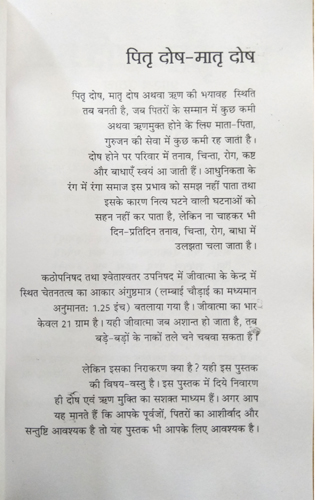 पितृ दोष-मातृ दोष
पितृ दोष, मातृ दोष अथवा ऋण की भयावह स्थिति
तब बनती है, जब पितरों के सम्मान में कुछ कमी
अथवा ऋणमुक्त होने के लिए माता-पिता,
गुरुजन की सेवा में कुछ कमी रह जाती है।
दोष होने पर परिवार में तनाव, चिन्ता, रोग, कष्ट
और बाधाएँ स्वयं आ जाती हैं। आधुनिकता के
रंग में रंगा समाज इस प्रभाव को समझ नहीं पाता तथा
इसके कारण नित्य घटने वाली घटनाओं को
सहन नहीं कर पाता है, लेकिन ना चाहकर भी
दिन-प्रतिदिन तनाव, चिन्ता, रोग, बाधा में
उलझता चला जाता है।
कठोपनिषद तथा श्वेताश्वतर उपनिषद में जीवात्मा के केन्द्र में
स्थित चेतनतत्व का आकार अंगुष्ठमात्र (लम्बाई चौड़ाई का मध्यमान
अनुमानत: 1.25 इंच) बतलाया गया है। जीवात्मा का भार
केवल 21 ग्राम है। यही जीवात्मा जब अशान्त हो जाता है, तब
बड़े-बड़ों के नाकों तले चने चबवा सकता है।
लेकिन इसका निराकरण क्या है? यही इस पुस्तक
की विषय-वस्तु है। इस पुस्तक में दिये निवारण
ही दोष एवं ऋण मुक्ति का सशक्त माध्यम हैं। अगर आप
यह मानते हैं कि आपके पूर्वजों, पितरों का आशीर्वाद और
सन्तुष्टि आवश्यक है तो यह पुस्तक भी आपके लिए आवश्यक है।